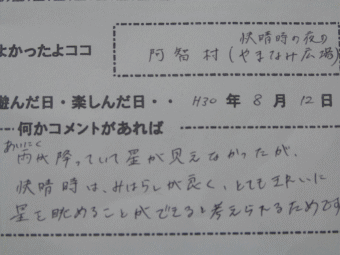 快晴時の夜の
よかったよココ 阿智村(やまなみ広場)
遊んだ日・楽しんだ日・・ H30 年 8 月 12 日
何かコメントがあれば
あいにく
雨が降っていて星が見えなかったが、
快晴時は、みはらしが良く、とてもきれいに
星を眺めることができると考えられるためです